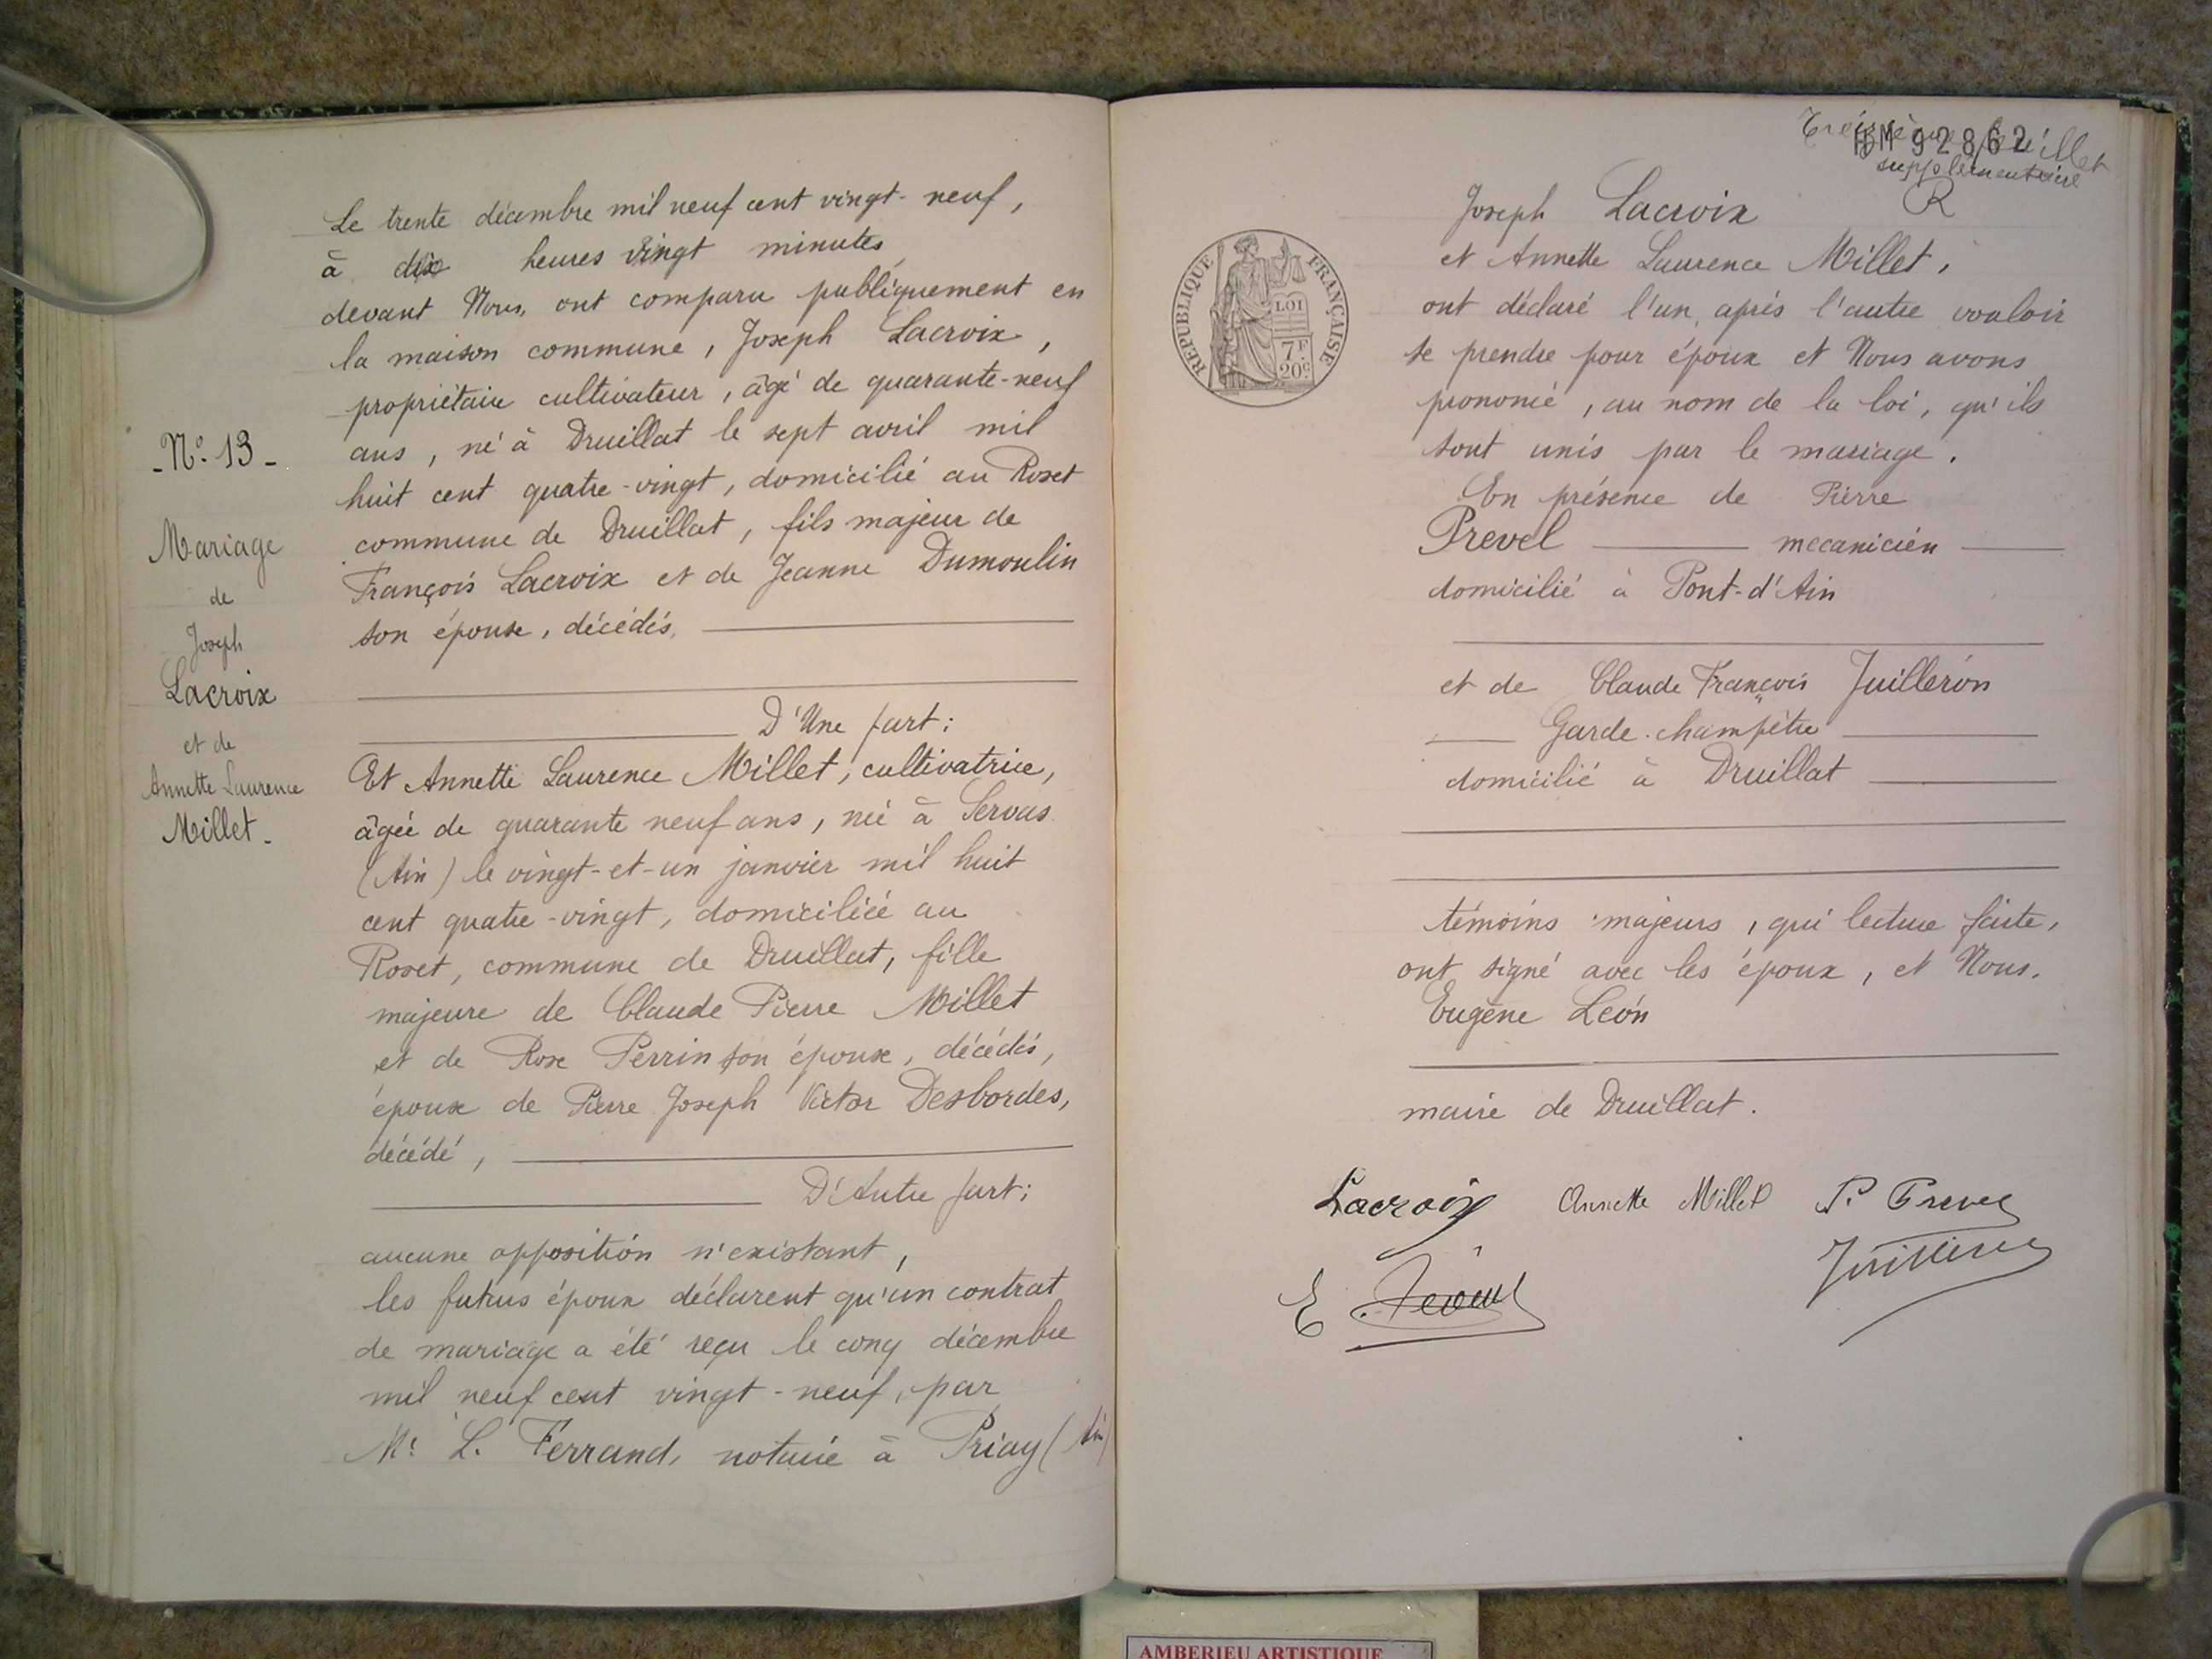 - N° 13 -
Mariage
de
Joseph
Lacroix
et de
Annette Laurence
Millet -
Le trente décembre mil neuf cent vingt-neuf,
à dix heures vingt minutes,
devant Nous, ont comparu publiquement en
la maison commune, Joseph Lacroix,
propriétaire cultivateur, âgé de quarante-neuf
ans, né à Druillat le sept avril mil
huit cent quatre-vingt, domicilié au Roset
commune de Druillat, fils majeur de
François Lacroix et de Jeanne Dumoulin
son épouse, décédés,
D'Une part;
Et Annette Laurence Millet, cultivatrice,
âgée de quarante neuf ans, née à Servas
(Ain) le vingt-et-un janvier mil huit
cent quatre-vingt, domiciliée au
Roset, commune de Druillat, fille
majeure de Claude Pierre Millet
et de Rose Perrin son épouse, décédés,
épouse de Pierre Joseph Victor Desbordes,
décédé,
D'Autre part;
aucune opposition n'existant,
les futurs époux déclarent qu'un contrat
de mariage a été reçu le cinq décembre
mil neuf cent vingt-neuf, par
Me L. Ferrand, notaire à Priay (Ain)
feuillet
HM 92862
supplémentaire
R
RÉPUBLIQUE FRANÇAISE
LOI
7F
20c
Joseph Lacroix
et Annette Laurence Millet,
ont déclaré l'un après l'autre vouloir
se prendre pour époux et Nous avons
prononcé, au nom de la loi, qu'ils
sont unis par le mariage.
En présence de Pierre
Prevel mecanicien
domicilié à Pont-d'Ain
et de Claude François Juilleron
Garde-champêtre
domicilié à Druillat
témoins majeurs, qui lecture faite,
ont signé avec les époux, et Nous.
Eugène Léon
maire de Druillat.
Lacroix Annette Millet P. Prevel
Juilleron
E Léon
AMBERIEU ARTISTIQUE